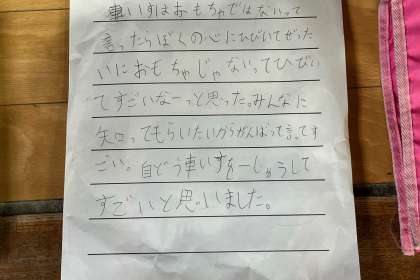 車いすはおもちゃではないって
言ったらぼくの心にひびいてぜった
いにおもちゃじゃないってひびい
てすごいなーっと思った。みんなに
知ってもらいたいからがんばって言ってす
ごい。自どう車いすを一しゅうして
すごいと思いました。